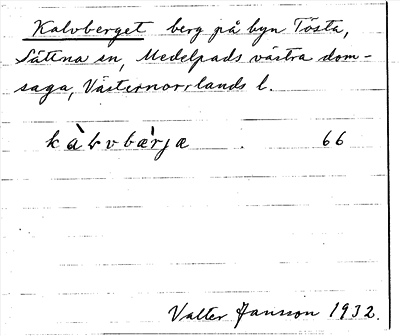 Kalvberget berg på byn Tösta,
Sättna sn, Medelpads västra dom-
saga, Västernorrlands l.
66
Valter Jansson 1932.